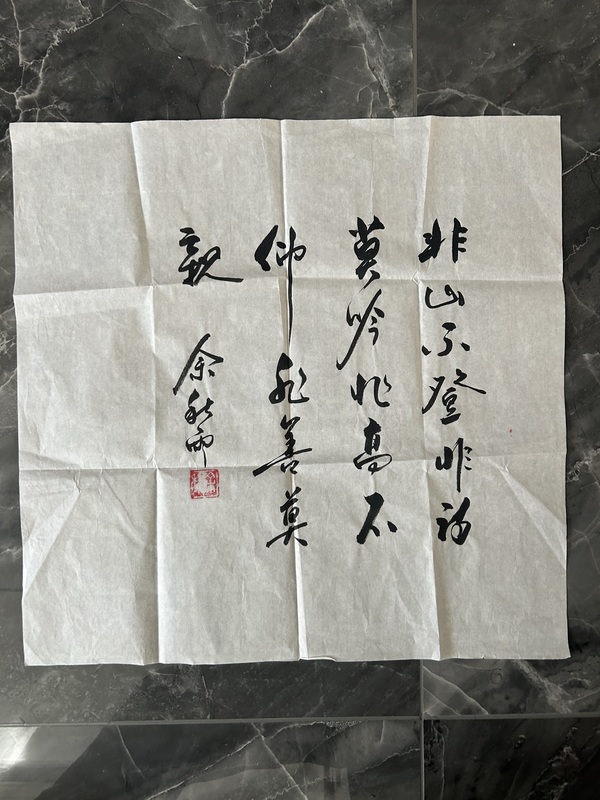 非山不登非诗
莫吟非高不
仰非善莫
親
余秋雨